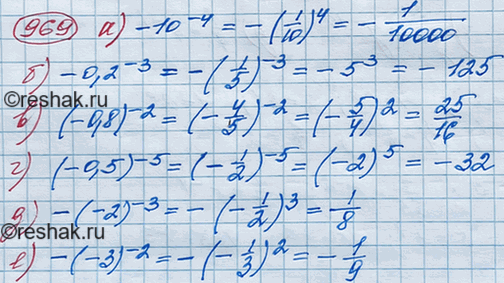 969 а) -10⁻⁴ = -(1/10)⁴ = - 1/10000
б) -0,2⁻³ = -(1/5)⁻³ = -5³ = -125
©reshak.ru
в) (-0,8)⁻² = (-4/5)⁻² = (-5/4)² = 25/16
г) (-0,5)⁻⁵ = (-1/2)⁻⁵ = (-2)⁵ = -32
д) -(-2)⁻³ = -(-1/2)³ = 1/8
©reshak.ru
е) -(-3)⁻² = -(-1/3)² = -1/9